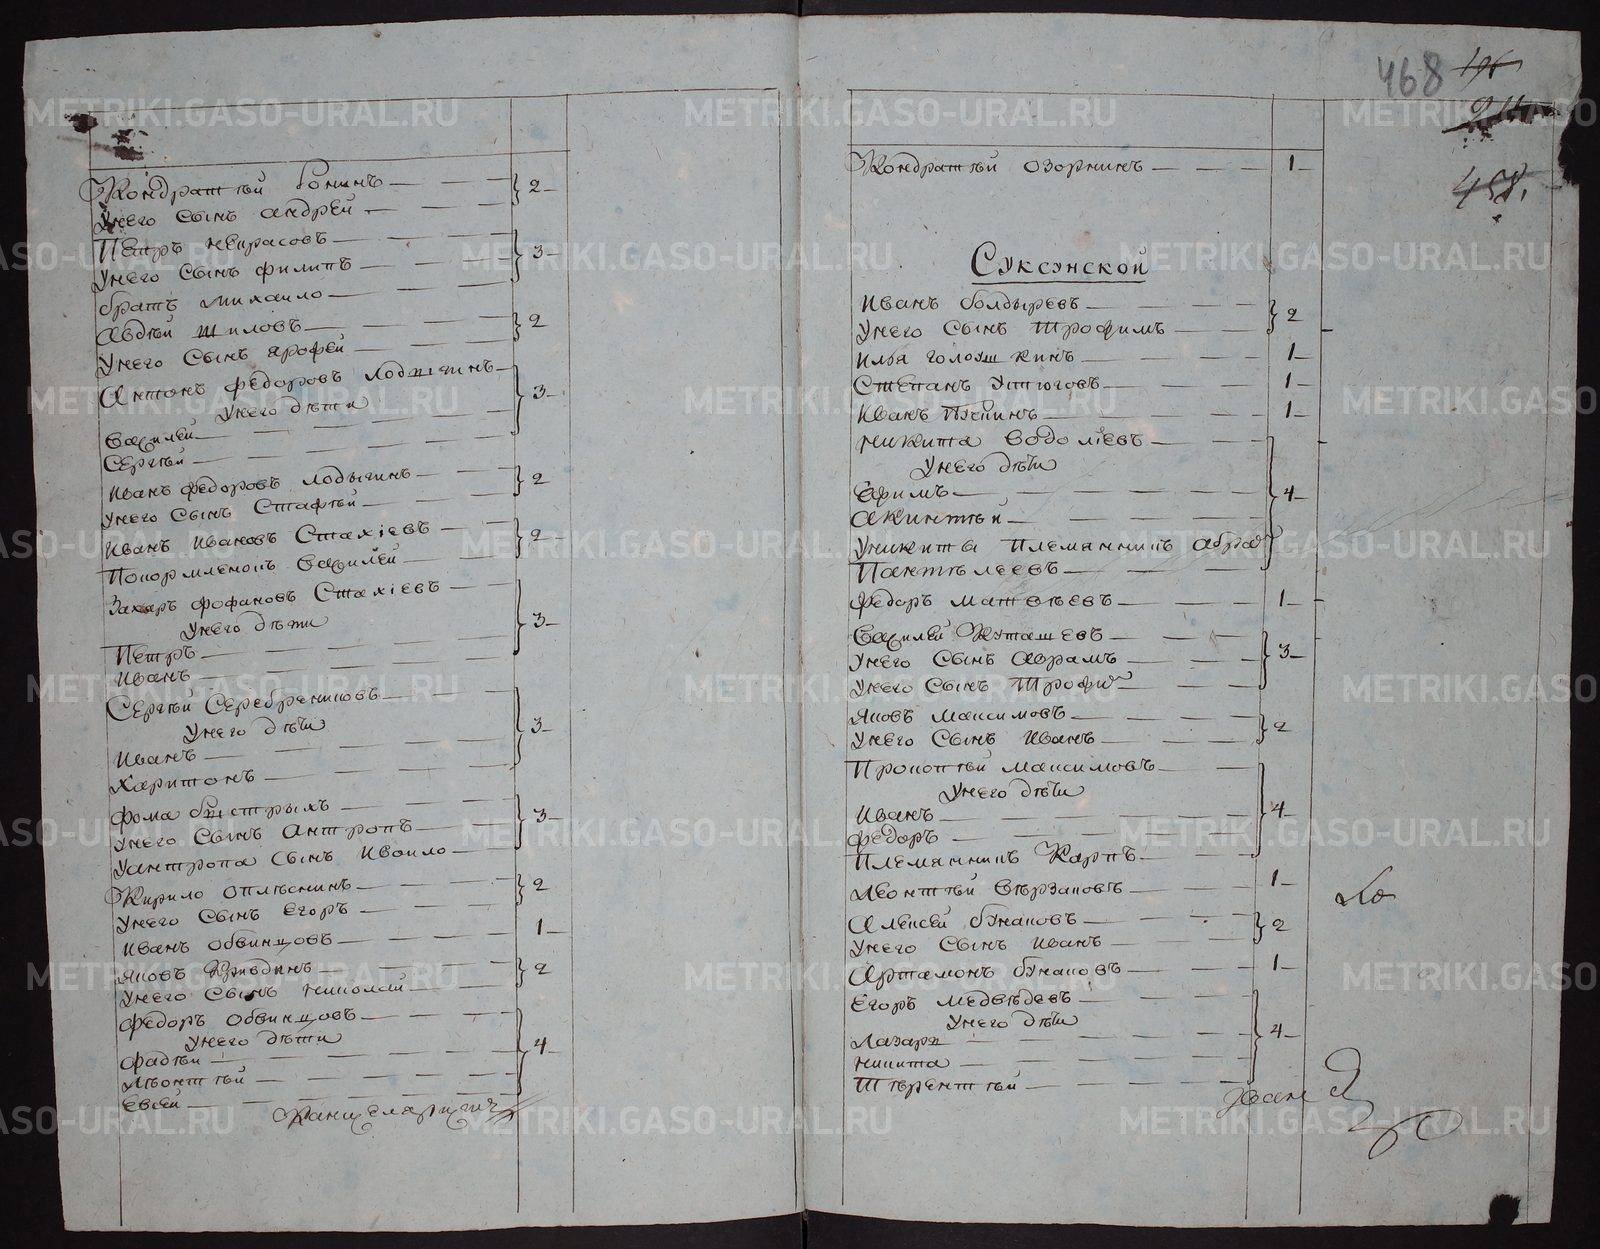 Кондратѣй Гонинъ 2
Унего Сынъ андрей
Петръ некрасовъ 3
Унего Сынъ филипъ
братъ михаило
Авдѣй шиловъ 2
Унего Сынъ ярофей
Антонъ федоровъ лодыгинъ 3
Унего дѣти
Василей
Сергѣй
Иванъ федоровъ лодыгинъ 2
Унего Сынъ Стафѣй
Иванъ Ивановъ Стахіевъ 2
Покормленокъ Василей
Захаръ фофановъ Стахіевъ 3
Унего дѣти
Петръ
Иванъ
Сергѣй Серебрениковъ 3
Унего дѣти
Иванъ
Харитонъ
фома быстрыхъ 3
Унего Сынъ Антропъ
Уантропа Сынъ Иваило
Кирило оплѣснинъ 2
Унего Сынъ Егоръ
Иванъ обвинцовъ 1
Яковъ Кривдинъ 2
Унего Сынъ николай
Федоръ обвинцовъ 4
Унего дѣти
Фадѣй
Лѣонтѣй
Евсей
Канцеляристъ
468
458.
Кондратѣй озорнинъ 1
Суксунской
Иванъ болдыревъ 2
Унего Сынъ трофимъ
Илья голоушкинъ 1
Степанъ Утюговъ 1
Иванъ Пупинъ 1
никита водолѣевъ 4
Унего дѣти
Ефимъ
Акинтѣй
Уникиты племянникъ абрам
Пантѣлеевъ
Федоръ матвѣевъ 1
Василей Куташевъ 3
Унего Сынъ Аврамъ
Унего Сынъ Трофим
Яковъ максимовъ 2
Унего Сынъ Иванъ
Прокопѣй максимовъ 4
Унего дѣти
Иванъ
Федоръ
Племянникъ Карпъ
Леонтѣй вѣрзаковъ 1
Алексей бунаковъ 2
Унего Сынъ Иванъ
Артамонъ бунаковъ 1
Егоръ медвѣдевъ 4
Унего дѣти
Лазарь
никита
тѣрентѣй
Иван